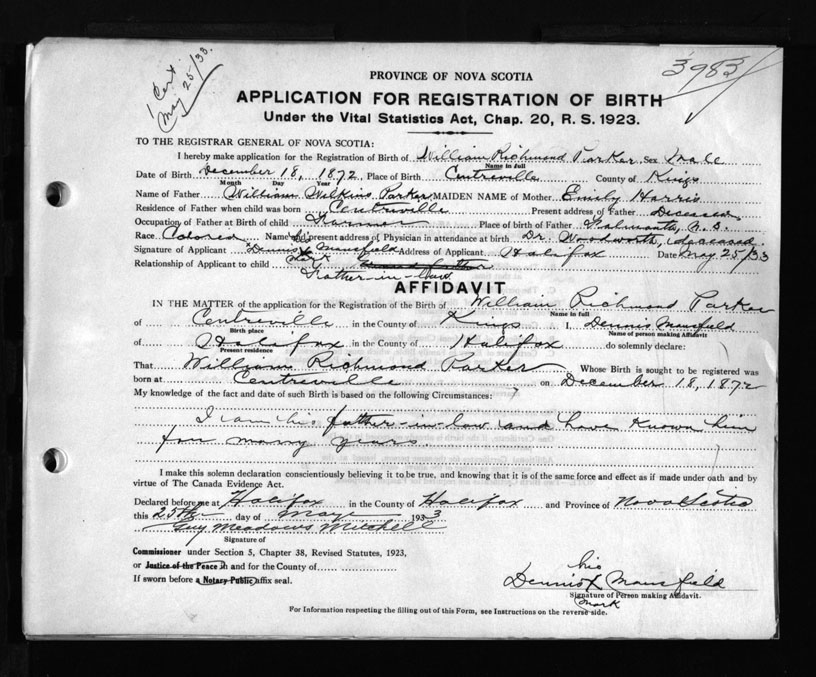 1 Cert.
May 25/33.
3983
PROVINCE OF NOVA SCOTIA
APPLICATION FOR REGISTRATION OF BIRTH
Under the Vital Statistics Act, Chap. 20, R. S. 1923.
TO THE REGISTRAR GENERAL OF NOVA SCOTIA:
I hereby make application for the Registration of Birth of William Richmond Parker Sex Male
Name in full
Date of Birth December 18, 1872 Place of Birth Centreville County of Kings
Month Day Year
Name of Father William Wilkins Parker MAIDEN NAME of Mother Emily Harris
Residence of Father when child was born Centreville Present address of Father Deceased
Occupation of Father at Birth of child Farmer Place of Birth of Father Falmouth, N. S.
Race Colored Name and present address of Physician in attendance at birth Dr. Woodworth, deceased
Signature of Applicant Dennis X Mansfield Address of Applicant Halifax Date May 25/33
his
mark
Relationship of Applicant to child
Father-in-law
AFFIDAVIT
IN THE MATTER of the application for the Registration of the Birth of William Richmond Parker
Name in full
of Centreville in the County of Kings I, Dennis Mansfield
Birth place Name of person making Affidavit
of Halifax in the County of Halifax do solemnly declare:
Present residence
That William Richmond Parker Whose Birth is sought to be registered was
born at Centreville on December 18, 1872
My knowledge of the fact and date of such Birth is based on the following Circumstances:
I am his father-in-law and have known him
for many years.
I make this solemn declaration conscientiously believing it to be true, and knowing that it is of the same force and effect as if made under oath and by
virtue of The Canada Evidence Act.
Declared before me at Halifax in the County of Halifax and Province of Nova Scotia
this 25th day of May 1933
Guy Meadows Mitchell
Signature of
Commissioner under Section 5, Chapter 38, Revised Statutes, 1923,
or Justice of the Peace in and for the County of
If sworn before a Notary Public affix seal.
his
Dennis X Mansfield
Signature of Person making Affidavit.
mark
For Information respecting the filling out of this Form, see Instructions on the reverse side.